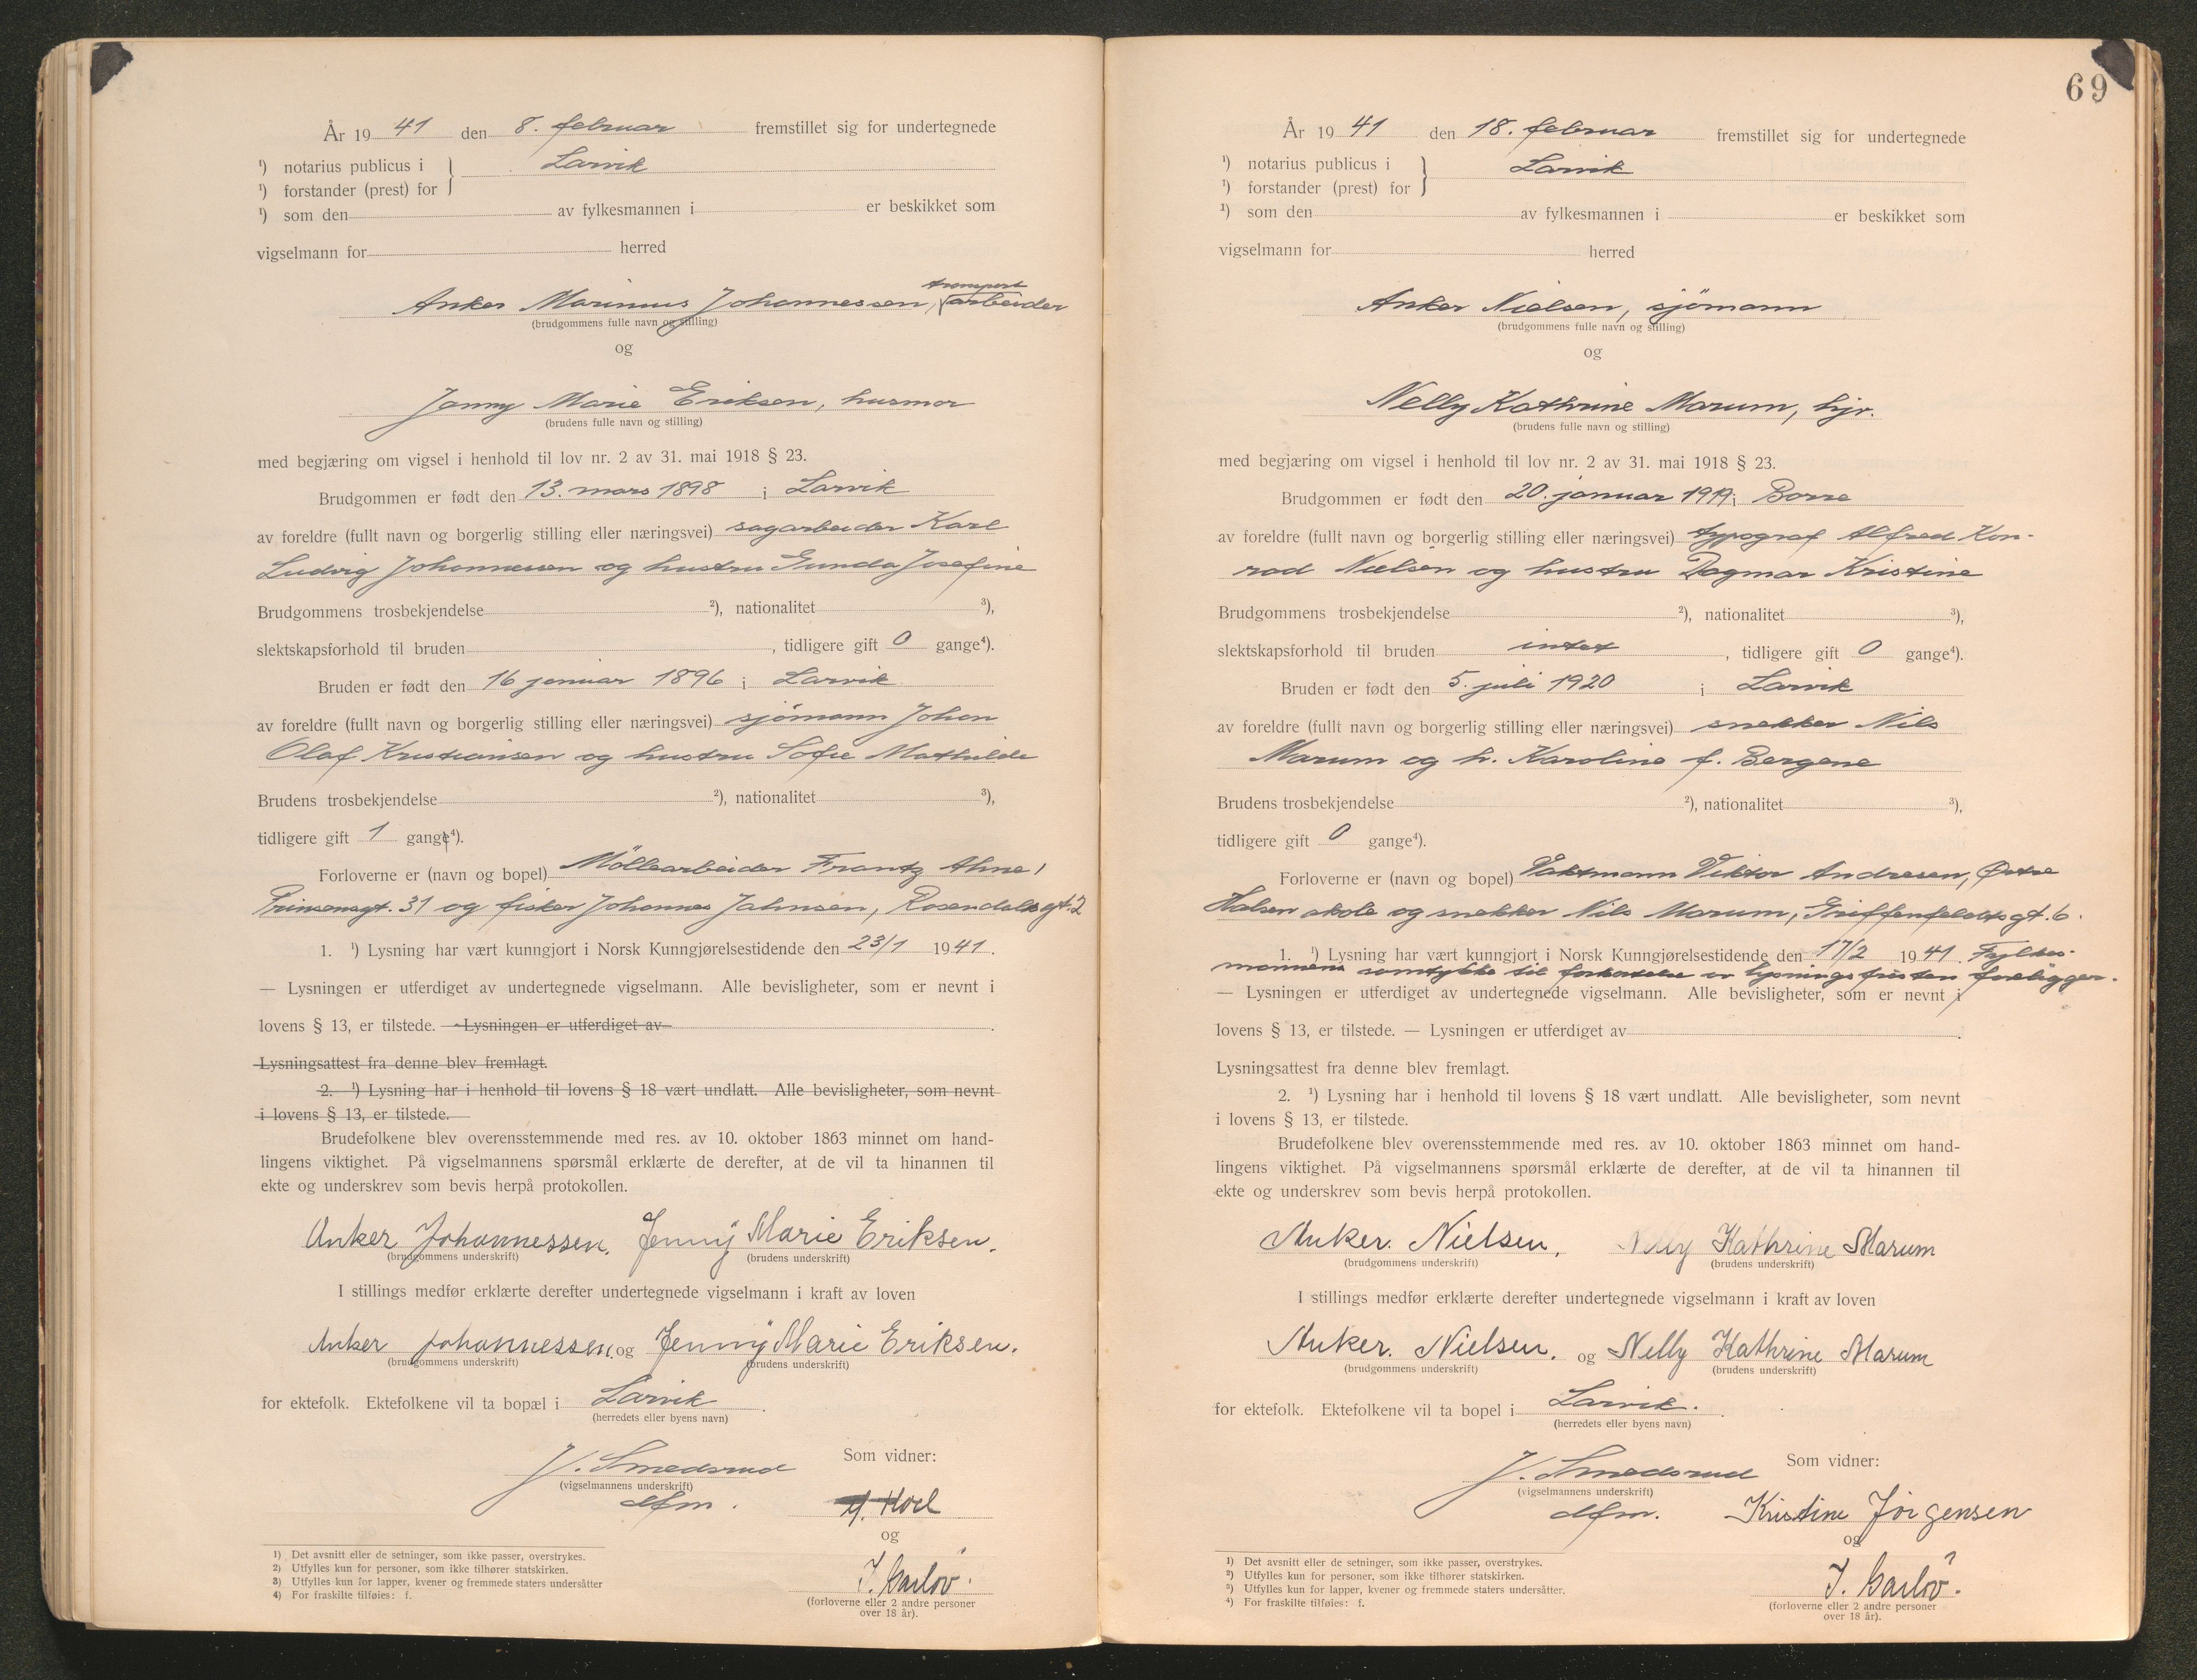 År 19 41 den 8. februar fremstillet sig for undertegnede
¹) notarius publicus i } Larvik
¹) forstander (prest) for
¹) som den av fylkesmannen i er beskikket som
vigselmann for herred
transport
Anker Marinius Johannessen, arbeider
(brudgommens fulle navn og stilling)
og
Jenny Marie Eriksen, husmor
(brudens fulle navn og stilling)
med begjæring om vigsel i henhold til lov nr. 2 av 31. mai 1918 § 23.
Brudgommen er født den 13. mars 1898 i Larvik
av foreldre (fullt navn og borgerlig stilling eller næringsvei) sagarbeider Karl
Ludvig Johannessen og hustru Gunda Josefine
Brudgommens trosbekjendelse ²), nationalitet ³),
slektskapsforhold til bruden , tidligere gift 0 gange⁴).
Bruden er født den 16 januar 1896 i Larvik
av foreldre (fullt navn og borgerlig stilling eller næringsvei) sjömann Johan
Olaf Kristiansen og hustru Sofie Mathilde
Brudens trosbekjendelse ²), nationalitet ³),
tidligere gift 1 gange⁴).
Forloverne er (navn og bopel) Möllearbeider Frantz Ahne,
Prinsensgt. 31 og fisker Johannes Jahnsen, Rosendalsgt. 2
1. ¹) Lysning har vært kunngjort i Norsk Kunngjørelsestidende den 23/1 1941.
— Lysningen er utferdiget av undertegnede vigselmann. Alle bevisligheter, som er nevnt i
lovens § 13, er tilstede. — Lysningen er utferdiget av .
Lysningsattest fra denne blev fremlagt.
2. ¹) Lysning har i henhold til lovens § 18 vært undlatt. Alle bevisligheter, som nevnt
i lovens § 13, er tilstede.
Brudefolkene blev overensstemmende med res. av 10. oktober 1863 minnet om hand-
lingens viktighet. På vigselmannens spørsmål erklærte de derefter, at de vil ta hinannen til
ekte og underskrev som bevis herpå protokollen.
Anker Johannessen. Jenny Marie Eriksen.
(brudgommens underskrift) (brudens underskrift)
I stillings medfør erklærte derefter undertegnede vigselmann i kraft av loven
Anker Johannessen. og Jenny Marie Eriksen.
(brudgommens underskrift) (brudens underskrift)
for ektefolk. Ektefolkene vil ta bopæl i Larvik .
(herredets eller byens navn)
J. Smedsrud Som vidner:
(vigselmannens underskrift)
dfm. Hoel
og
J. Garlöv.
(forloverne eller 2 andre personer
over 18 år).
1) Det avsnitt eller de setninger, som ikke passer, overstrykes.
2) Utfylles kun for personer, som ikke tilhører statskirken.
3) Utfylles kun for lapper, kvener og fremmede staters undersåtter
4) For fraskilte tilføies: f.
69
År 19 41 den 18. februar fremstillet sig for undertegnede
¹) notarius publicus i } Larvik
¹) forstander (prest) for
¹) som den av fylkesmannen i er beskikket som
vigselmann for herred
Anker Nielsen, sjömann
(brudgommens fulle navn og stilling)
og
Nelly Kathrine Marum, hjv.
(brudens fulle navn og stilling)
med begjæring om vigsel i henhold til lov nr. 2 av 31. mai 1918 § 23.
Brudgommen er født den 20. januar 1919 i Borre
av foreldre (fullt navn og borgerlig stilling eller næringsvei) typograf Alfred Kon-
rad Nielsen og hustru Dagmar Kristine
Brudgommens trosbekjendelse ²), nationalitet ³),
slektskapsforhold til bruden intet , tidligere gift 0 gange⁴).
Bruden er født den 5. juli 1920 i Larvik
av foreldre (fullt navn og borgerlig stilling eller næringsvei) snekker Nils
Marum og h. Karoline f. Bergene
Brudens trosbekjendelse ²), nationalitet ³),
tidligere gift 0 gange⁴).
Forloverne er (navn og bopel) Vaktmann Viktor Andresen, Østre
Halsen skole og snekker Nils Marum, Griffenfeldtsgt. 6.
1. ¹) Lysning har vært kunngjort i Norsk Kunngjørelsestidende den 17/2 1941. Fylkes-
mannens samtykke til forkortelse av lysningsfristen foreligger.
— Lysningen er utferdiget av undertegnede vigselmann. Alle bevisligheter, som er nevnt i
lovens § 13, er tilstede. — Lysningen er utferdiget av .
Lysningsattest fra denne blev fremlagt.
2. ¹) Lysning har i henhold til lovens § 18 vært undlatt. Alle bevisligheter, som nevnt
i lovens § 13, er tilstede.
Brudefolkene blev overensstemmende med res. av 10. oktober 1863 minnet om hand-
lingens viktighet. På vigselmannens spørsmål erklærte de derefter, at de vil ta hinannen til
ekte og underskrev som bevis herpå protokollen.
Anker. Nielsen. Nelly Kathrine Marum
(brudgommens underskrift) (brudens underskrift)
I stillings medfør erklærte derefter undertegnede vigselmann i kraft av loven
Anker. Nielsen. og Nelly Kathrine Marum
(brudgommens underskrift) (brudens underskrift)
for ektefolk. Ektefolkene vil ta bopel i Larvik.
(herredets eller byens navn)
J. Smedsrud Som vidner:
(vigselmannens underskrift)
dfm. Kristine Jørgensen
og
J. Garlöv.
(forloverne eller 2 andre personer
over 18 år).
¹) Det avsnitt eller de setninger, som ikke passer, overstrykes.
²) Utfylles kun for personer, som ikke tilhører statskirken.
³) Utfylles kun for lapper, kvener og fremmede staters undersåtter.
⁴) For fraskilte tilføies: f.